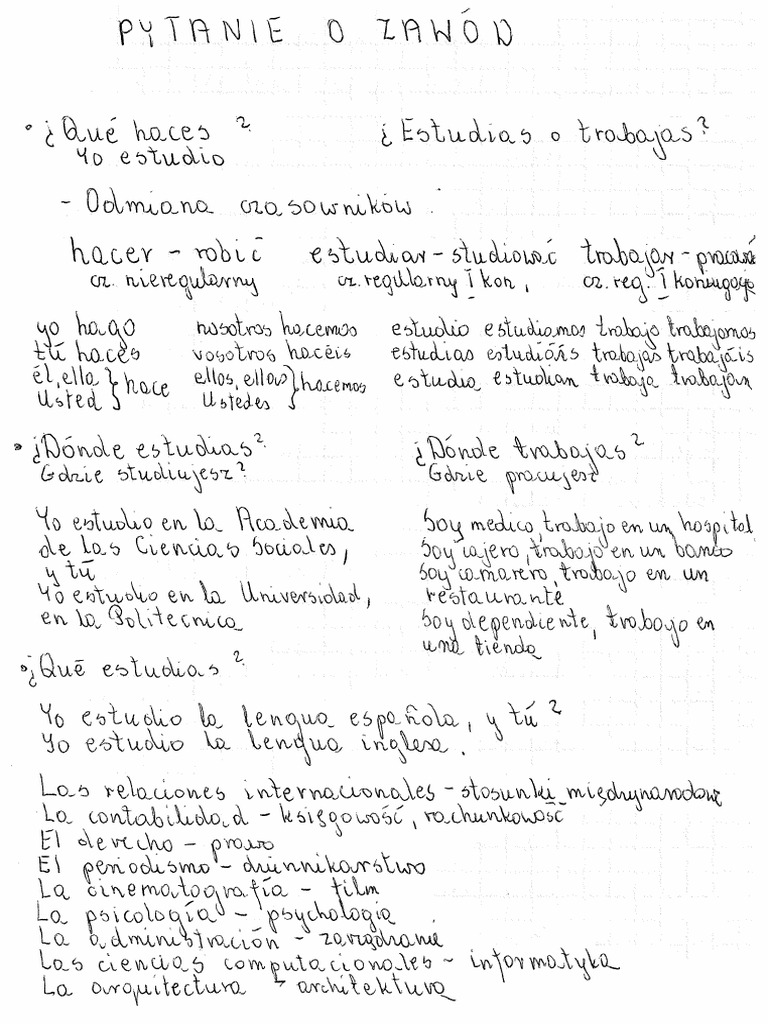 PYTANIE O ZAWÓD
• ¿Qué haces? ¿Estudias o trabajas?
Yo estudio
- Odmiana czasowników:
hacer – robić estudiar – studiować trabajar – pracować
cz. nieregularny cz. regularny I kon. cz. reg. I koniugacja
yo hago nosotros hacemos estudio estudiamos trabajo trabajamos
tú haces vosotros hacéis estudias estudiáis trabajas trabajáis
él, ella } hace ellos, ellas } hacemos estudia estudian trabaja trabajan
Usted Ustedes
• ¿Dónde estudias? ¿Dónde trabajas?
Gdzie studiujesz? Gdzie pracujesz
Yo estudio en la Academia Soy medico, trabajo en un hospital
de las Ciencias Sociales, Soy cajero, trabajo en un banco
y tú Soy camarero, trabajo en un
Yo estudio en la Universidad, restaurante
en la Politecnica Soy dependiente, trabajo en
una tienda
• ¿Qué estudias?
Yo estudio la lengua española, y tú?
Yo estudio la lengua inglesa.
Las relaciones internacionales – stosunki międzynarodowe
La contabilidad – księgowość, rachunkowość
El derecho – prawo
El periodismo – dziennikarstwo
La cinematografía – film
La psicología – psychologia
La administración – zarządzanie
Las ciencias computacionales – informatyka
La arquitectura – architektura